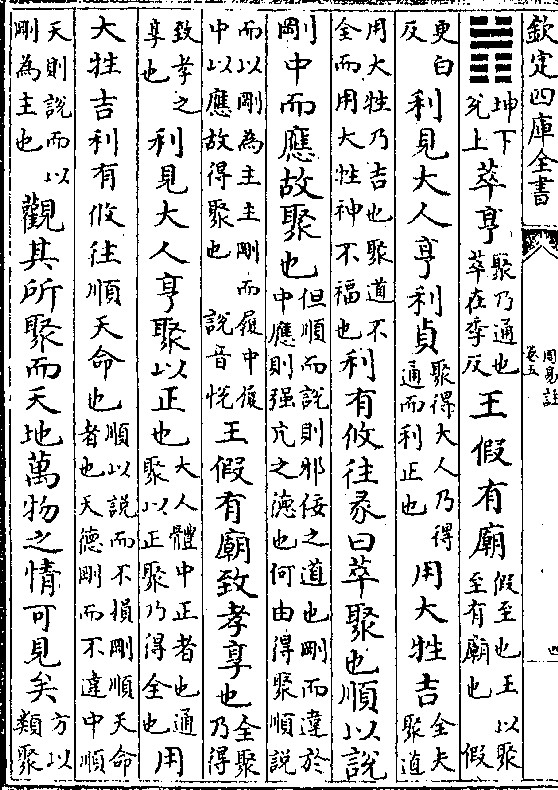 欽定四庫全書
周易註
卷五
四
䷬坤下兌上萃亨聚乃通也萃在季反王假有廟假至也王以聚至有廟也 假
更白反利見大人亨利貞聚得大人乃得通而利正也用大牲吉全夫聚道
用大牲乃吉也聚道不全而用大牲神不福也利有攸往彖曰萃聚也順以說
剛中而應故聚也但順而說則邪佞之道也剛而違於中應則强亢之德也何由得聚順說
而以剛為主主剛而履中履中以應故得聚也 說音悅王假有廟致孝享也全聚乃得
致孝之享也利見大人亨聚以正也大人體中正者也通聚以正聚乃得全也用
大牲吉利有攸往順天命也順以說而不損剛順天命者也天德剛而不違中順
天則說而以剛為主也觀其所聚而天地萬物之情可見矣方以類聚